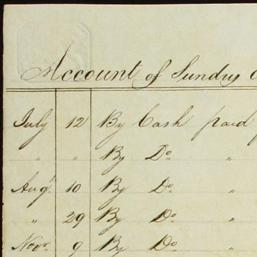 Account of Sundry
July 12 By Cash paid
" " By Do "
Augt 10 By Do "
" 29 By Do "
Novr 9 By Do "